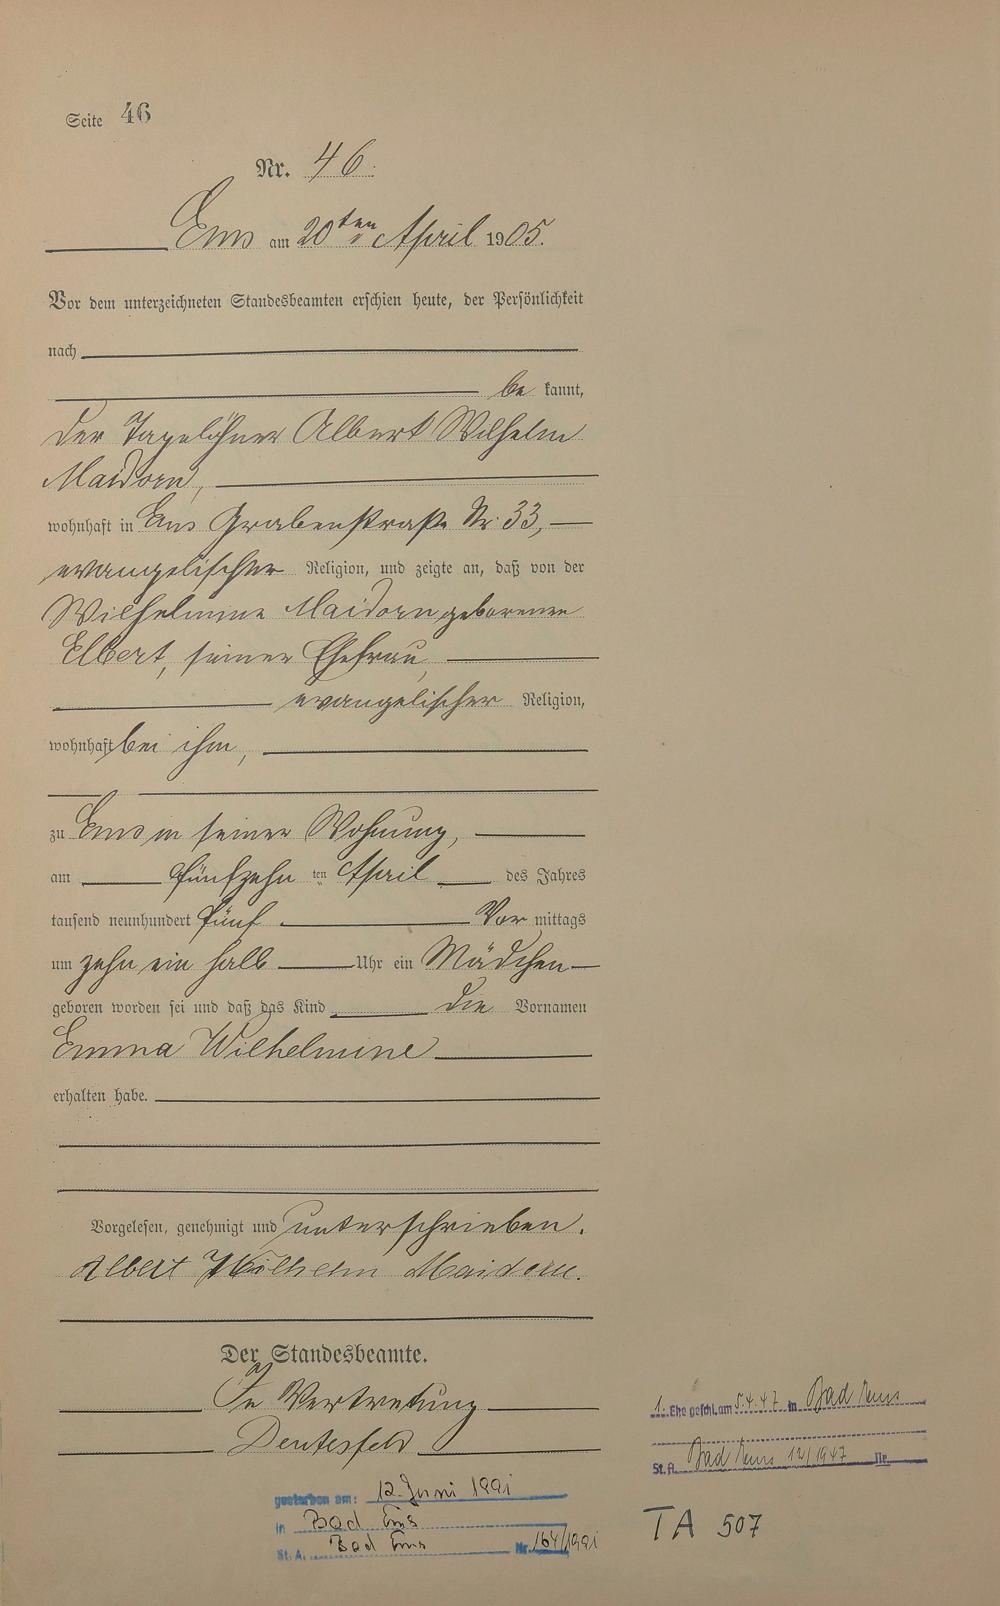 Seite 46
Nr. 46.
Ems am 20ten April 1905.
Vor dem unterzeichneten Standesbeamten erschien heute, der Persönlichkeit
nach
be kannt,
der Tagelöhner Albert Wilhelm
Maidorn,
wohnhaft in Ems Grabenstraße Nr. 33,
evangelischer Religion, und zeigte an, daß von der
Wilhelmine Maidorn geborenen
Elbert, seiner Ehefrau,
evangelischer Religion,
wohnhaft bei ihm,
zu Ems in seiner Wohnung,
am fünfzehn ten April des Jahres
tausend neunhundert fünf Vor mittags
um zehn ein halb Uhr ein Mädchen
geboren worden sei und daß das Kind die Vornamen
Emma Wilhelmine
erhalten habe.
Vorgelesen, genehmigt und unterschrieben.
Albert Wilhelm Maidorn.
Der Standesbeamte.
In Vertretung
Deutesfeld
1. Ehe geschl. am 5.4.47 in Bad Ems
St. A. Bad Ems 12/1947 Nr.
gestorben am: 12. Juni 1991
in Bad Ems
St. A. Bad Ems Nr. 164/1991
TA 507